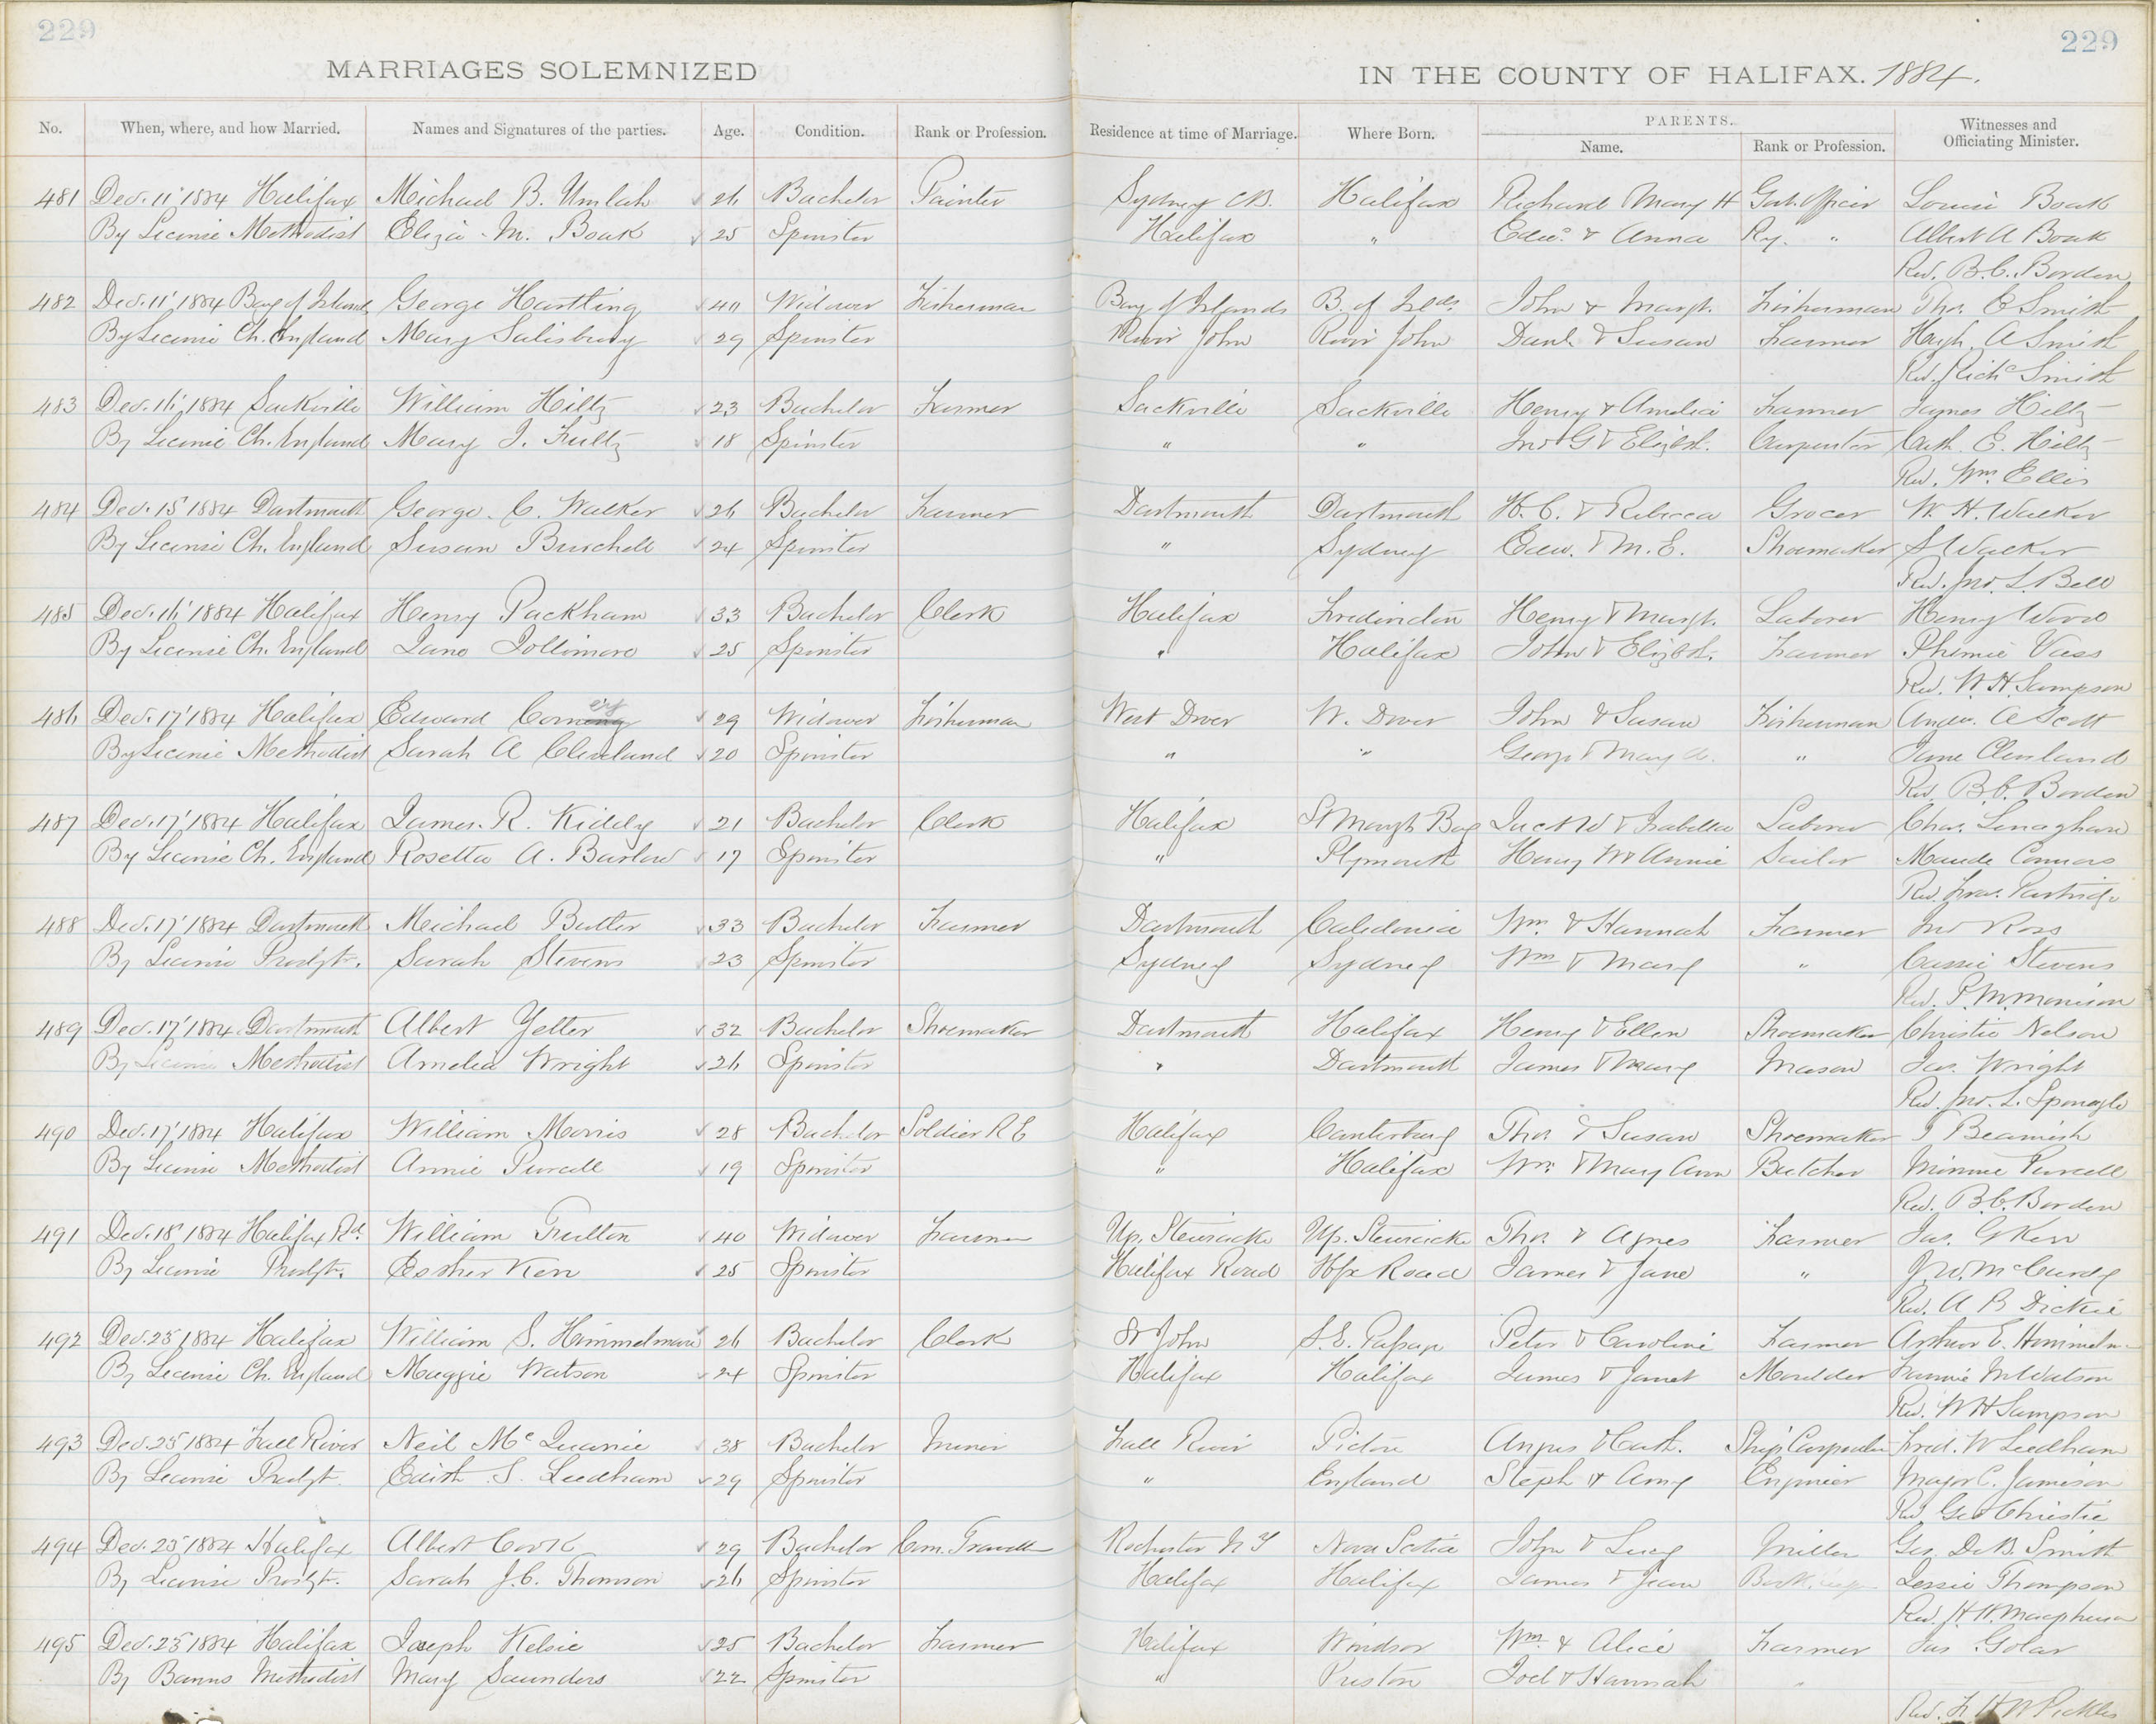 229 229
MARRIAGES SOLEMNIZED IN THE COUNTY OF HALIFAX. 1884.
No. When, where, and how Married. Names and Signatures of the parties. Age. Condition. Rank or Profession. Residence at time of Marriage. Where Born. PARENTS. Name. Rank or Profession. Witnesses and Officiating Minister.
481 Dec. 11' 1884 Halifax Michael B. Umlah 26 Bachelor Painter Sydney CB. Halifax Richard Mary H Govt. Officer Louise Boak
By License Methodist Eliza M. Boak 25 Spinster Halifax " Edwd. & Anna Ry. " Albert A Boak
Rev. B.C. Borden
482 Dec. 11' 1884 Bay of Islands George Hartling 40 Widower Fisherman Bay of Islands B. of Ilds. John & Margt. Fisherman Thos. E Smith
By License Ch. England Mary Salisbury 29 Spinster River John River John Danl. & Susan Farmer Hugh A Smith
Rev. Richd Smith
483 Dec. 16' 1884 Sackville William Hiltz 23 Bachelor Farmer Sackville Sackville Henry & Amelia Farmer James Hiltz
By License Ch. England Mary J. Fultz 18 Spinster " " Jno G & Elizbth. Carpenter Cath. E. Hiltz
Rev. Wm. Ellis
484 Dec. 15' 1884 Dartmouth George C. Walker 26 Bachelor Farmer Dartmouth Dartmouth H. C. & Rebecca Grocer W. H. Walker
By License Ch. England Susan Burchell 24 Spinster " Sydney Edw. & M. E. Shoemaker S Walker
Rev. Jno. L. Bell
485 Dec. 16' 1884 Halifax Henry Packham 33 Bachelor Clerk Halifax Henry & Margt. Laborer Henry Wood
By License Ch. England Jane Jollimore 25 Spinster " Halifax John & Elizbth. Farmer Phemie Vass
Rev. W. H. Sampson
486 Dec. 17' 1884 Halifax Edward Corneng ers 29 Widower Fisherman West Dover W. Dover John & Susan Fisherman Andw. A Scott
By License Methodist Sarah A Cleveland 20 Spinster " " George & Mary A. " Jane Cleveland
Rev. B. C. Borden
487 Dec. 17' 1884 Halifax James. R. Kiddy 21 Bachelor Clerk Halifax St Margts Bay & Isabella Laborer Chas. Lenaghan
By License Ch. England Rosetta A. Barlow 17 Spinster " Plymouth Henry W & Annie Sailor Maude Connors
Rev. Fras. Partridge
488 Dec. 17' 1884 Dartmouth Michael Butler 33 Bachelor Farmer Dartmouth Caledonia Wm. & Hannah Farmer Jno Ross
By License Presbyt. Sarah Stevens 23 Spinster Sydney Sydney Wm & Mary " Cassie Stevens
Rev. P. M. Morrison
489 Dec. 17' 1884 Dartmouth Albert Yetter 32 Bachelor Shoemaker Dartmouth Halifax Henry & Ellen Shoemaker Christie Nelson
By License Methodist Amelia Wright 26 Spinster " Dartmouth James & Mary Mason Jas. Wright
Rev. Jno. L. Sponagle
490 Dec. 17' 1884 Halifax William Morris 28 Bachelor Soldier R E Halifax Canterbury Thos & Susan Shoemaker T Beamish
By License Methodist Annie Purcell 19 Spinster " Halifax Wm. & Mary Ann Butcher Minnie Purcell
Rev. B. C. Borden
491 Dec. 18' 1884 Halifax Rd. William Fulton 40 Widower Farmer Up. Stewiacke Up. Stewiacke Thos. & Agnes Farmer Jas. G Kerr
By License Presbyt. Esther Kerr 25 Spinster Halifax Road Hfx Road James & Jane " J. W. McCurdy
Rev. A B Dickie
492 Dec. 25 1884 Halifax William S. Himmelman 26 Bachelor Clerk St John Peter & Caroline Farmer Arthur E. Himmelman
By License Ch. England Maggie Watson 24 Spinster Halifax Halifax James & Janet Moulder Minnie M Watson
Rev. W H Sampson
493 Dec. 25' 1884 Fall River Neil McQuarrie 38 Bachelor Miner Fall River Pictou Angus & Cath. Ship Carpenter Fred. W Leedham
By License Presbyt. Edith S. Leedham 29 Spinster " England Steph & Amy Engineer Major C. Jamison
Rev Geo Christie
494 Dec. 25' 1884 Halifax Albert Cook 29 Bachelor Com. Traveller Rochester N Y Nova Scotia John & Lucy Miller Geo. De B. Smith
By License Presbyt. Sarah J. C. Thomson 26 Spinster Halifax Halifax James & Jean Lessie Thompson
Rev. H. H. Macpherson
495 Dec. 25 1884 Halifax Joseph Kelsie 25 Bachelor Farmer Halifax Windsor Wm. & Alice Farmer Jas Golar
By Banns Methodist Mary Saunders 22 Spinster " Preston Joel & Hannah "
Rev. F. H W Pickles